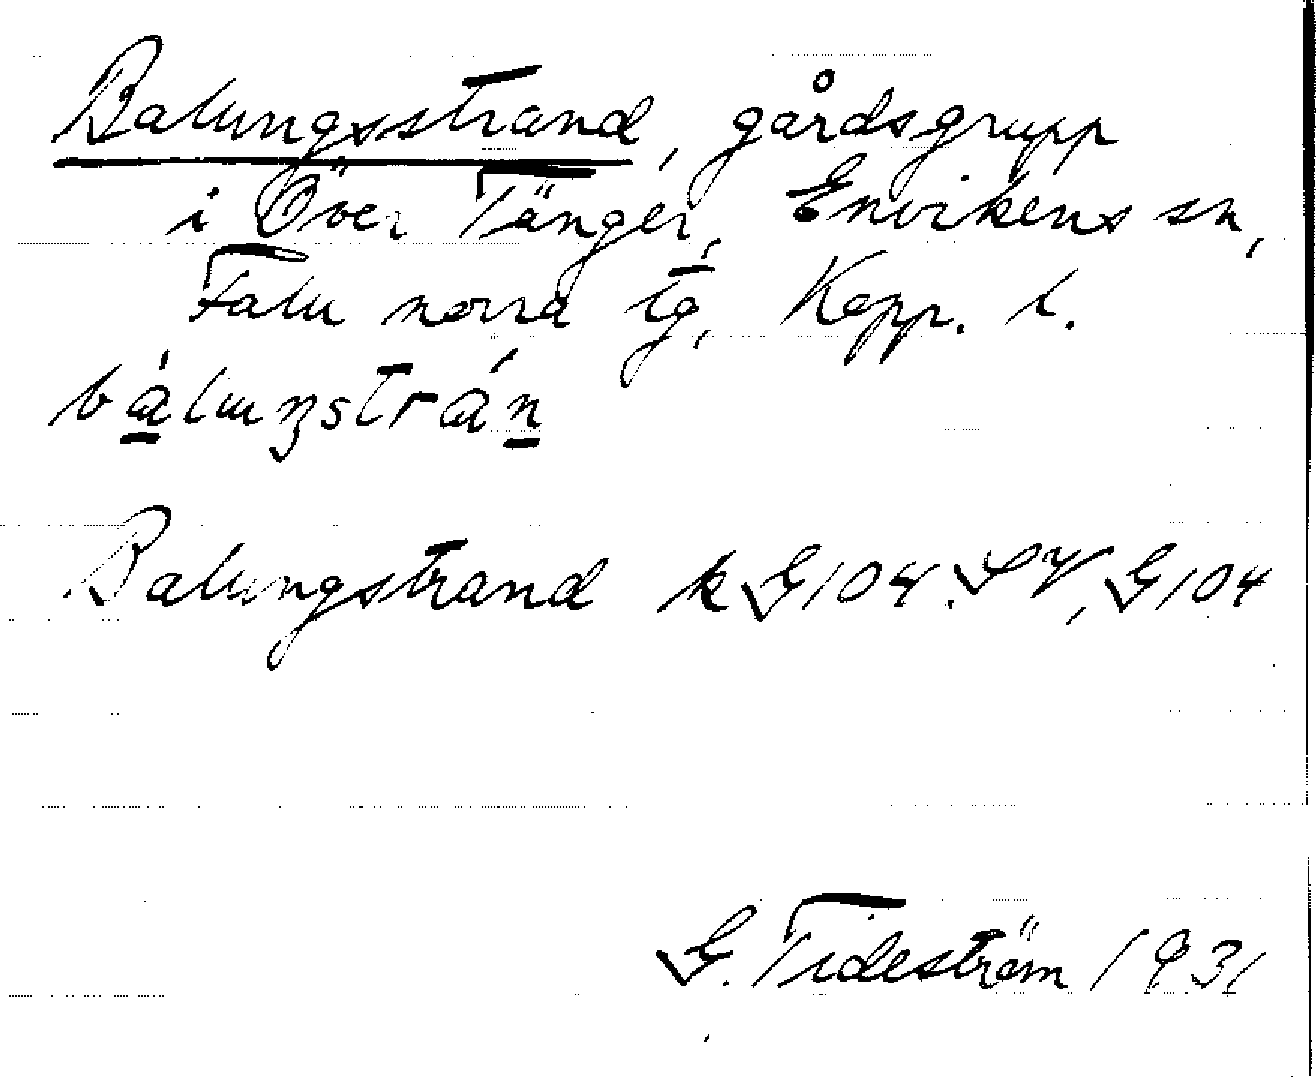 Balungsstrand, gårdsgrupp
i Över Tänger, Envikens sn,
Falu norra tg, Kopp. l.
bálu​ŋstrán
Balungstrand k G104 SV, G104
G. Tideström 1931